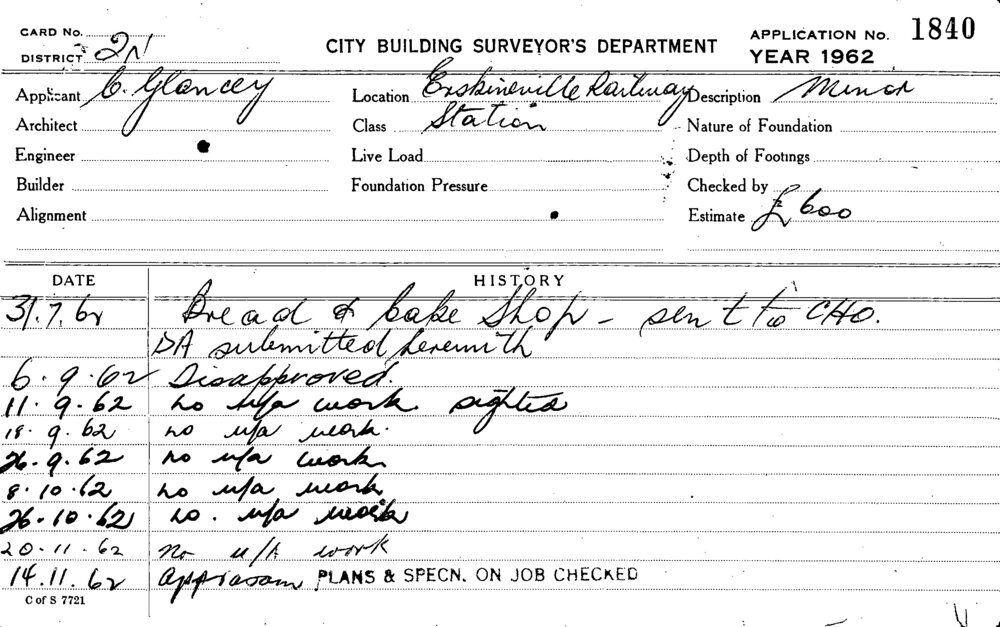 CARD No.
DISTRICT 2N
CITY BUILDING SURVEYOR'S DEPARTMENT
APPLICATION No. 1840
YEAR 1962
Applicant C. Glancey
Location Erskineville Railway
Description Minor
Architect
Class Station
Nature of Foundation
Engineer
Live Load
Depth of Footings
Builder
Foundation Pressure
Checked by
Alignment
Estimate £600
DATE HISTORY
31.7.62 Bread & Cake Shop - sent to CHO.
DA submitted herewith
6.9.62 Disapproved.
11.9.62 no u/a work. sighted
18.9.62 no u/a work.
26.9.62 no u/a work
8.10.62 no u/a work
26.10.62 no. u/a work
20.11.62 no u/A work
14.11.62 PLANS & SPECN. ON JOB CHECKED
C of S 7721